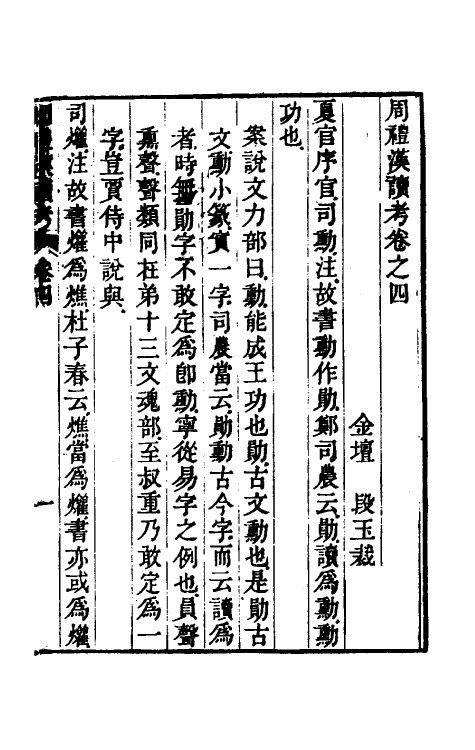 周禮漢讀考卷之四
金壇 段玉裁
夏官序官司勳注故書勳作勛鄭司農云勛讀爲勳勳
功也
案說文力部曰勳能成王功也勛古文勳也是勛古
文勳小篆實一字司農當云勛勳古今字而云讀爲
者時無勛字不敢定爲卽勳寧從易字之例也員聲
熏聲聲類同在弟十三文魂部至叔重乃敢定爲一
字豈賈侍中說與
司爟注故書爟爲燋杜子春云燋當爲爟書亦或爲爟
周禮漢讀考 卷四 一